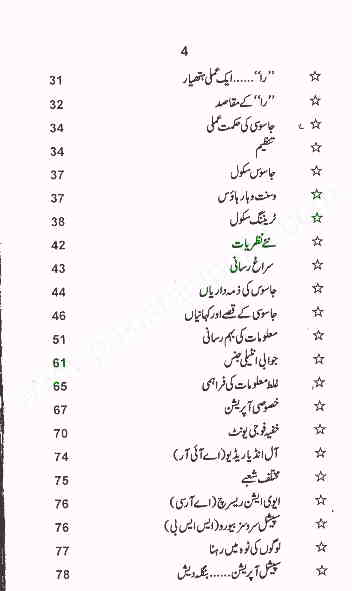 4
☆ "را"......ایک عملی ہتھیار 31
☆ "را" کے مقاصد 32
☆ جاسوسی کی حکمت عملی 34
☆ تنظیم 34
☆ جاسوس سکول 37
☆ وسنت وہار ہاؤس 37
☆ ٹریننگ سکول 38
☆ نئے نظریات 42
☆ سراغ رسانی 43
☆ جاسوس کی ذمہ داریاں 44
☆ جاسوسی کے قصے اور کہانیاں 46
☆ معلومات کی بہم رسانی 51
☆ جوابی انٹیلی جنس 61
☆ غلط معلومات کی فراہمی 65
☆ خصوصی آپریشن 67
☆ خفیہ فوجی یونٹ 70
☆ آل انڈیا ریڈیو (اے آئی آر) 74
☆ مختلف شعبے 75
☆ ایوی ایشن ریسرچ (اے آر سی) 76
☆ سپیشل سروسز بیورو (ایس ایس بی) 76
☆ لوگوں کی ٹوہ میں رہنا 77
☆ سپیشل آپریشن......بنگلہ دیش 78